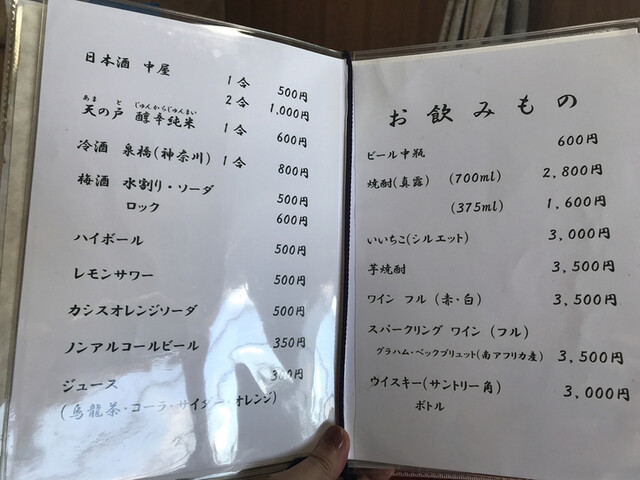 日本酒 中屋 1合 500円
2合 1,000円
あま と じゅんからじゅんまい
天の戸 醇辛純米 1合 600円
冷酒 泉橋(神奈川) 1合 800円
梅酒 水割り・ソーダ 500円
ロック 600円
ハイボール 500円
レモンサワー 500円
カシスオレンジソーダ 500円
ノンアルコールビール 350円
ジュース 300円
(烏龍茶・コーラ・サイダー・オレンジ)
お飲みもの
ビール中瓶 600円
焼酎(真露) (700ml) 2,800円
(375ml) 1,600円
いいちこ(シルエット) 3,000円
芋焼酎 3,500円
ワイン フル (赤・白) 3,500円
スパークリング ワイン (フル)
グラハム・ベックブリュット(南アフリカ産) 3,500円
ウイスキー(サントリー角) 3,000円
ボトル